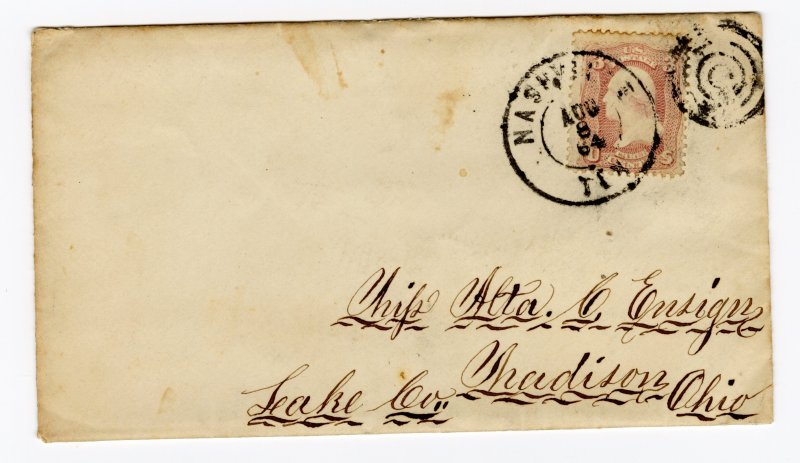 NASHVILLE
AUG
8
64
U.S.
3 3
Miss Alta. C Ensign
Madison
Lake Co. Ohio